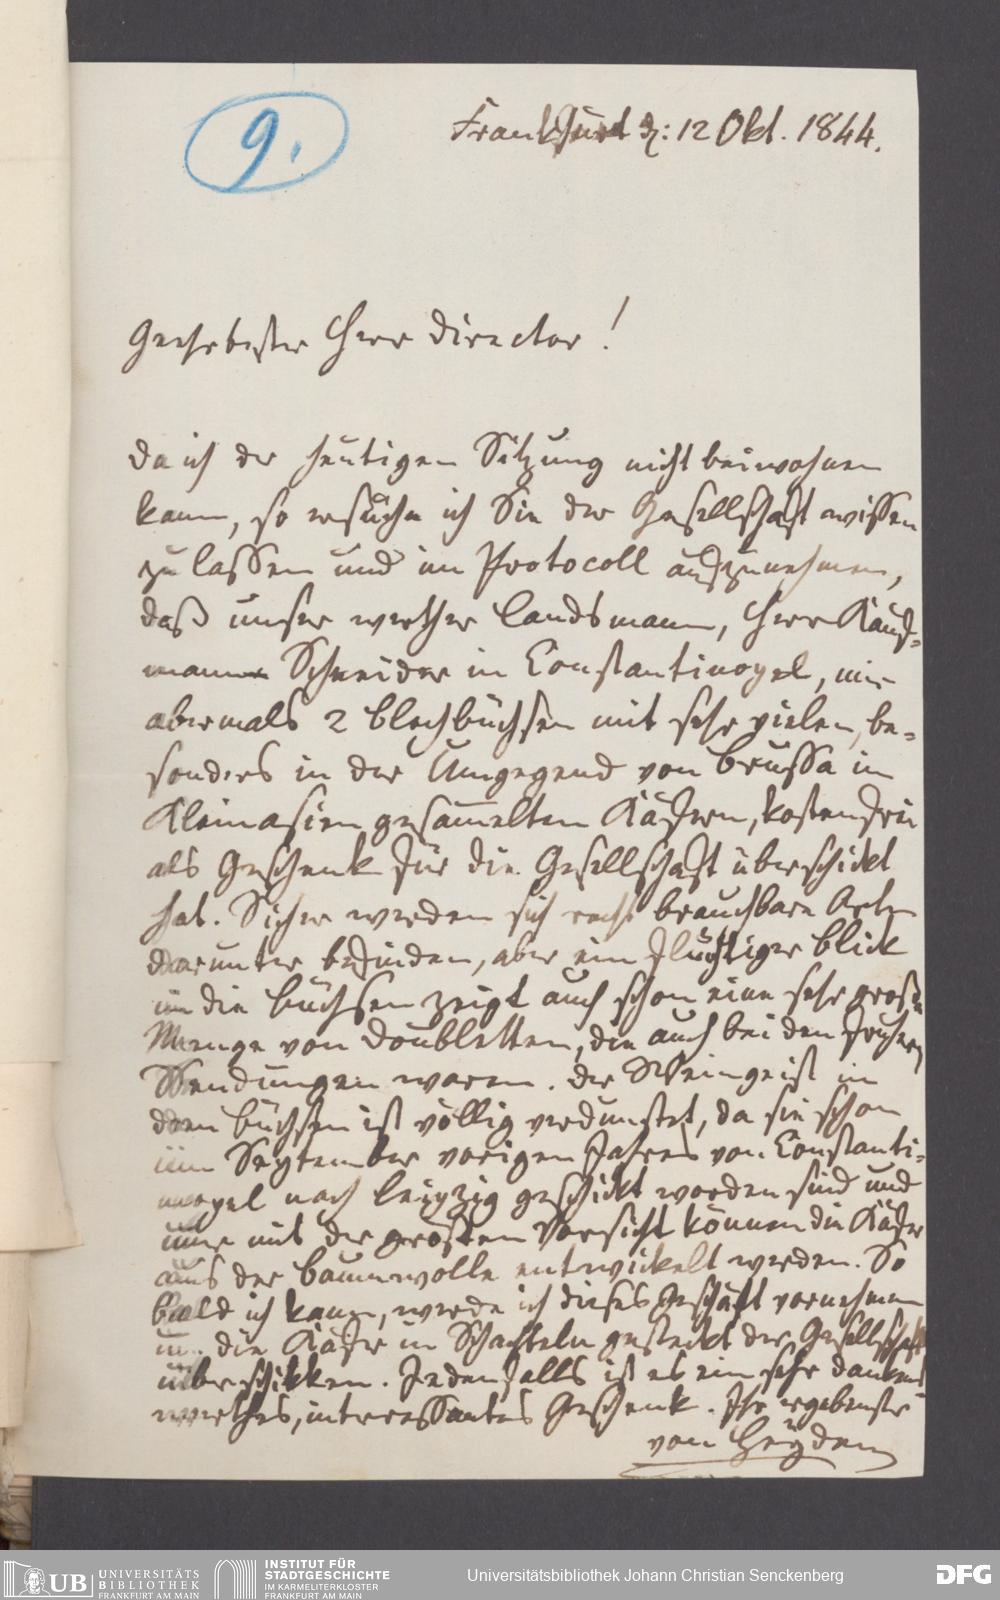 9.
Frankfurt d: 12 Okt. 1844.
Geehrtester Herr Director!
Da ich der heutigen Sitzung nicht beiwohnen
kann, so ersuche ich Sie der Gesellschaft wissen
zu lassen und im Protocoll aufzunehmen,
daß unser werther Landsmann, Herr Kauf-
mann Schneider in Constantinopel, mir
abermals 2 Blechbüchsen mit sehr vielen, be-
sonders in der Umgegend von Brussa in
Kleinasien gesam̅elten Käfern, kostenfrei
als Geschenk für die Gesellschaft überschickt
hat. Sicher werden sich recht brauchbare Arten
darunter befinden, aber ein flüchtiger Blick
in die Büchsen zeigt auch schon eine sehr große
Menge von Doubletten, die auch bei den frühern
Sendungen waren. Der Weingeist in
den Büchsen ist völlig verdunstet, da sie schon
im September vorigen Jahres von Constanti-
nopel nach Leipzig geschickt worden sind und
nur mit der größten Vorsicht können die Käfer
aus der Baumwolle entwickelt werden. So
bald ich kann, werde ich dieses Geschäft vornehmen
u. die Käfer in Schachteln gesteckt der Gesellschaft
überschikken. Jedenfalls ist es ein sehr dankens-
werthes, interessantes Geschenk. Ihr ergebenster
von Heyden
UB UNIVERSITÄTS
BIBLIOTHEK
FRANKFURT AM MAIN
INSTITUT FÜR
STADTGESCHICHTE
IM KARMELITERKLOSTER
FRANKFURT AM MAIN
Universitätsbibliothek Johann Christian Senckenberg
DFG